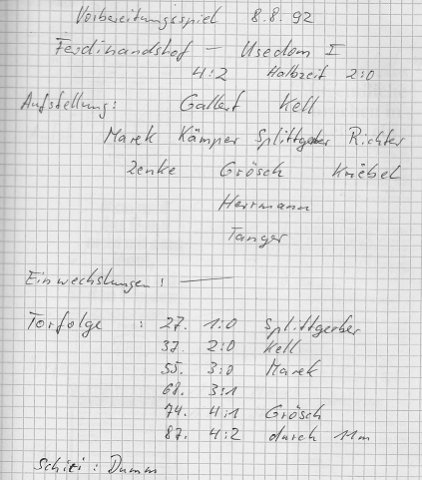 Vorbereitungsspiel 8.8.92
Ferdinandshof - Usedom I
4:2 Halbzeit 2:0
Aufstellung: Gallert Kell
Marek Kämper Splittgerber Richter
Zenke Grösch Kniebel
Herrmann
Tanger
Einwechslungen: —
Torfolge : 27. 1:0 Splittgerber
37. 2:0 Kell
55. 3:0 Marek
68. 3:1
74. 4:1 Grösch
87. 4:2 durch 11m
Schiri: Dumm